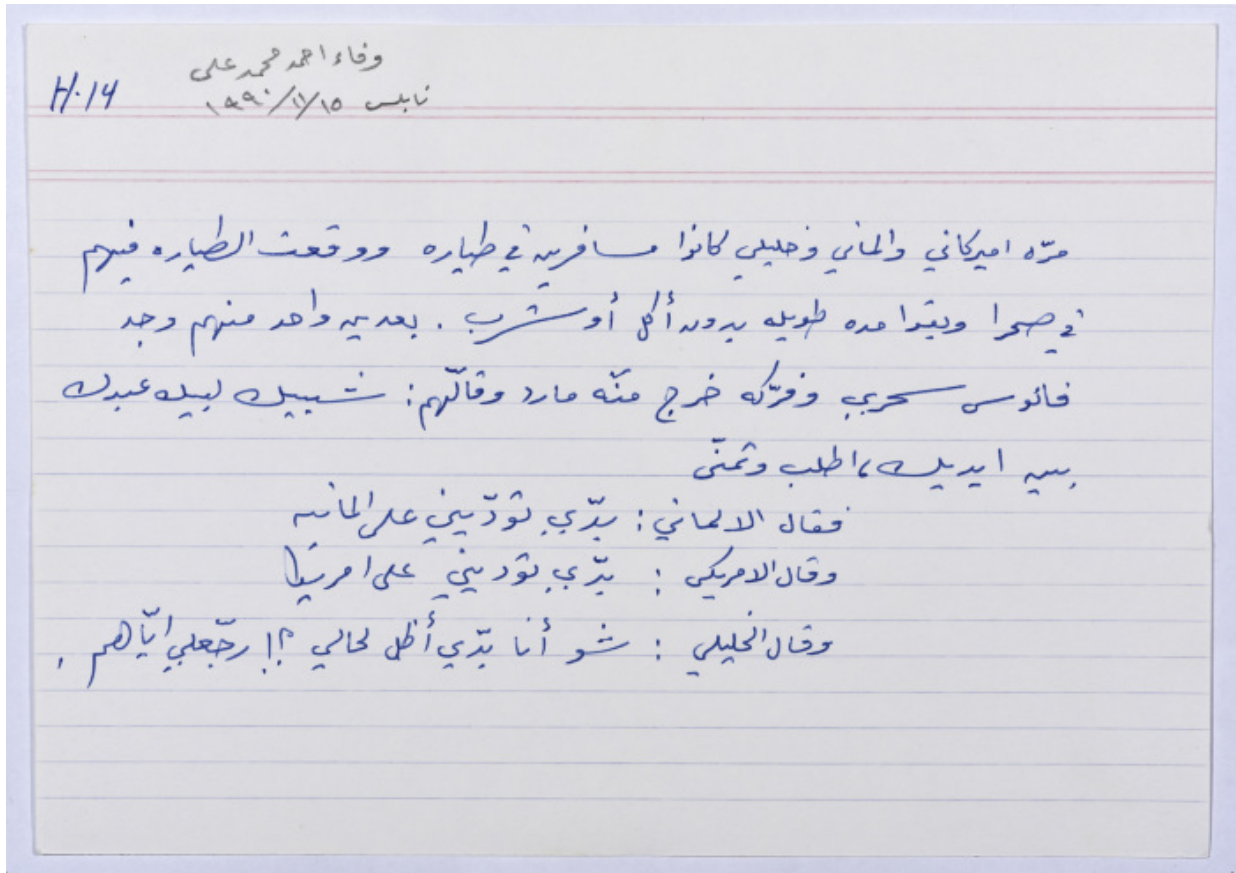 وفاء احمد محمد علي
H.14
نابلس ١٩٩٠/١١/١٥
مرّه اميركاني والماني وخليلي كانوا مسافرين في طياره ووقعت الطياره فيهم
في صحرا وبقوا مده طويله بدون أكل أو شرب . بعدين واحد منهم وجد
فانوس سحري وفرّكه خرج منّه مارد وقالّهم : شبيك لبيك عبدك
بين ايديك ، اطلب وتمنّى
فقال الالماني : بدّي تودّيني على المانيه
وقال الامريكي : بدّي توديني على امريكا
وقال الخليلي : شو أنا بدّي أظل لحالي ؟!! رجّعلي ايّاهم .